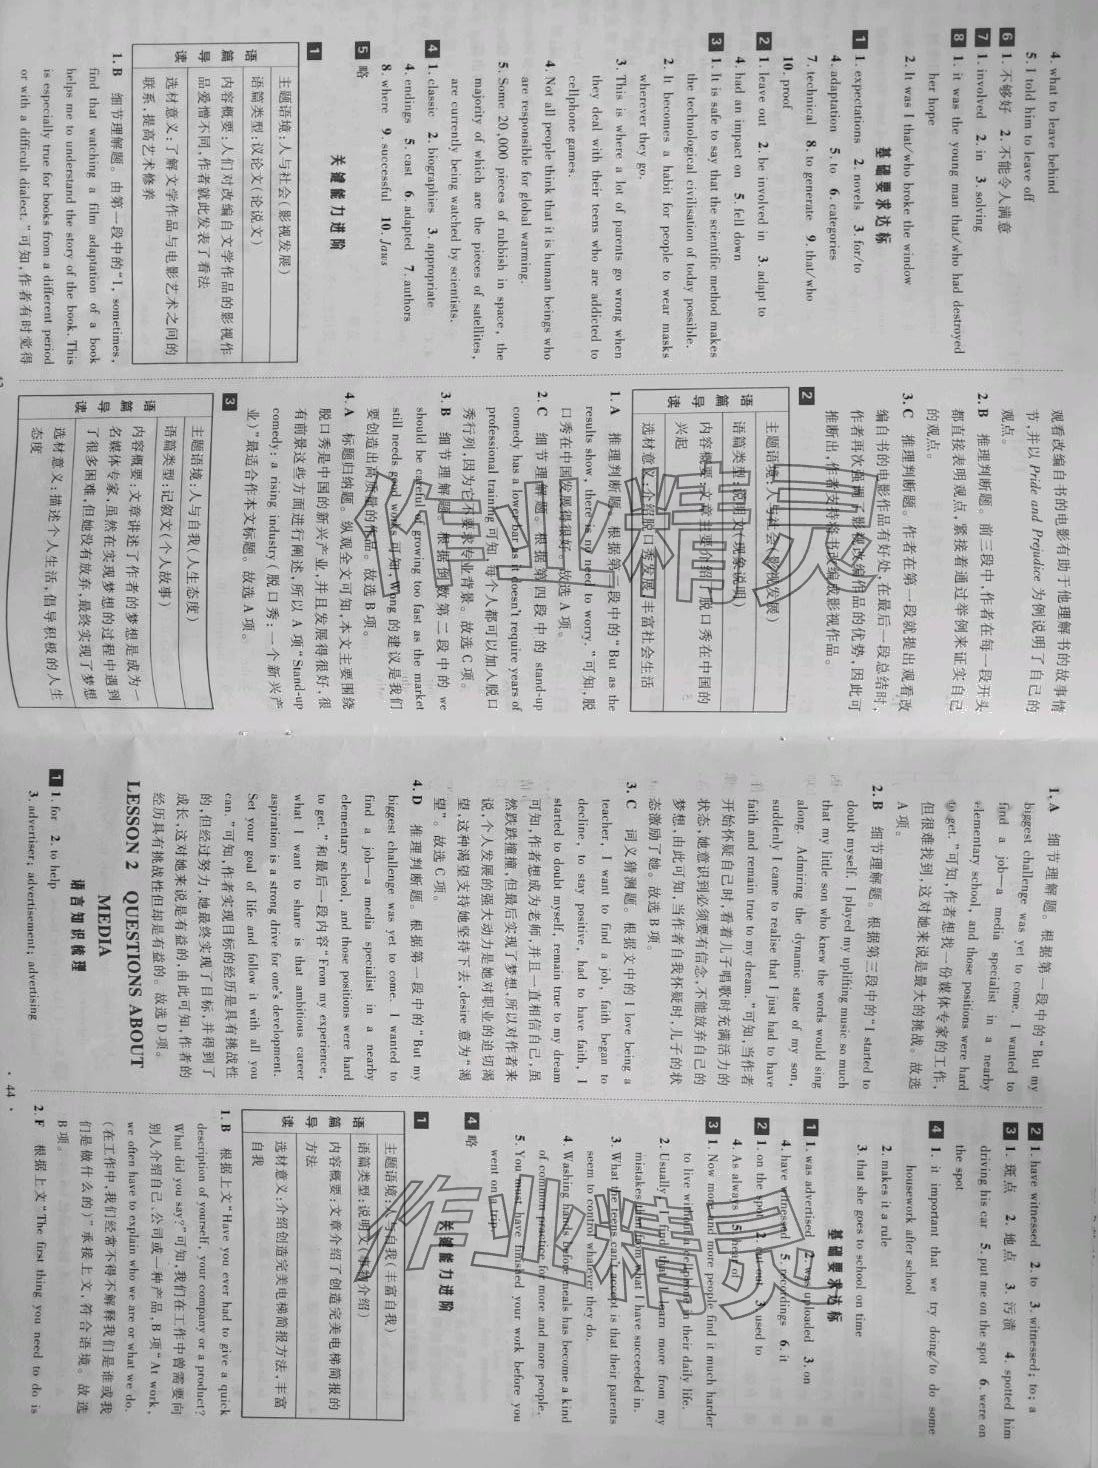 4. what to leave behind
5. I told him to leave off
6 1. 不够好 2. 不能令人满意
7 1. involved 2. in 3. solving
8 1. it was the young man that/who had destroyed
her hope
2. It was I that/who broke the window
基础要求达标
1 1. expectations 2. novels 3. for/to
4. adaptation 5. to 6. categories
7. technical 8. to generate 9. that/who
10. proof
2 1. leave out 2. be involved in 3. adapt to
4. had an impact on 5. fell down
3 1. It is safe to say that the scientific method makes
the technological civilisation of today possible.
2. It becomes a habit for people to wear masks
wherever they go.
3. This is where a lot of parents go wrong when
they deal with their teens who are addicted to
cellphone games.
4. Not all people think that it is human beings who
are responsible for global warming.
5. Some 20,000 pieces of rubbish in space, the
majority of which are the pieces of satellites,
are currently being watched by scientists.
4 1. classic 2. biographies 3. appropriate
4. endings 5. cast 6. adapted 7. authors
8. where 9. successful 10. Jaws
5 略
关键能力进阶
1
语篇导读
主题语境:人与社会(影视发展)
语篇类型:议论文(论说文)
内容概要:人们对改编自文学作品的影视作
品爱憎不同,作者就此发表了看法
选材意义:了解文学作品与电影艺术之间的
联系,提高艺术修养
1. B 细节理解题。由第一段中的“I, sometimes,
find that watching a film adaptation of a book
helps me to understand the story of the book. This
is especially true for books from a different period
or with a difficult dialect.”可知,作者有时觉得
观看改编自书的电影有助于他理解书的故事情
节,并以 Pride and Prejudice 为例说明了自己的
观点。
2. B 推理判断题。前三段中,作者在每一段开头
都直接表明观点,紧接着通过举例来证实自己
的观点。
3. C 推理判断题。作者在第一段就提出观看改
编自书的电影作品有好处,在最后一段总结时,
作者再次强调了影视改编作品的优势,因此可
推断出,作者支持将书改编成影视作品。
2
语篇导读
主题语境:人与社会(影视发展)
语篇类型:说明文(现象说明)
内容概要:文章主要介绍了脱口秀在中国的
兴起
选材意义:介绍脱口秀发展,丰富社会生活
1. A 推理判断题。根据第二段中的“But as the
results show, there is no need to worry.”可知,脱
口秀在中国发展得很好。故选 A 项。
2. C 细节理解题。根据第四段中的 stand-up
comedy has a lower bar as it doesn't require years of
professional training 可知,每个人都可以加入脱口
秀行列,因为它不要求专业背景。故选 C 项。
3. B 细节理解题。根据倒数第二段中的 we
should be careful of growing too fast as the market
still needs good works 可知, Wang 的建议是我们
要创造出高质量的作品。故选 B 项。
4. A 标题归纳题。纵观全文可知,本文主要围绕
脱口秀是中国的新兴产业,并且发展得很好,很
有前景这些方面进行阐述,所以 A 项“Stand-up
comedy: a rising industry (脱口秀:一个新兴产
业)”最适合作本文标题。故选 A 项。
3
语篇导读
主题语境:人与自我(人生态度)
语篇类型:记叙文(个人故事)
内容概要:文章讲述了作者的梦想是成为一
名媒体专家,虽然在实现梦想的过程中遇到
了很多困难,但她没有放弃,最终实现了梦想
选材意义:描述个人生活,倡导积极的人生
态度
1. A 细节理解题。根据第一段中的“But my
biggest challenge was yet to come. I wanted to
find a job—a media specialist in a nearby
elementary school, and those positions were hard
to get.”可知,作者想找一份媒体专家的工作,
但很难找到,这对她来说是最大的挑战。故选
A 项。
2. B 细节理解题。根据第三段中的“I started to
doubt myself. I played my uplifting music so much
that my little son who knew the words would sing
along. Admiring the dynamic state of my son,
suddenly I came to realise that I just had to have
faith and remain true to my dream.”可知,当作者
开始怀疑自己时,看着儿子唱歌时充满活力的
状态,她意识到必须要有信念,不能放弃自己的
梦想,由此可知,当作者自我怀疑时,儿子的状
态激励了她。故选 B 项。
3. C 词义猜测题。根据文中的 I love being a
teacher, I want to find a job, faith began to
decline, to stay positive, had to have faith, I
started to doubt myself, remain true to my dream
可知,作者想成为老师,并且一直相信自己,虽
然跌跌撞撞,但最后实现了梦想,所以对作者来
说,个人发展的强大动力是她对职业的迫切渴
望,这种渴望支持她坚持下去,desire 意为“渴
望”。故选 C 项。
4. D 推理判断题。根据第一段中的“But my
biggest challenge was yet to come. I wanted to
find a job—a media specialist in a nearby
elementary school, and those positions were hard
to get.”和最后一段内容“From my experience,
what I want to share is that ambitious career
aspiration is a strong drive for one's development.
Set your goal of life and follow it with all you
can.”可知,作者实现目标的经历是具有挑战性
的,但经过努力,她最终实现了目标,并得到了
成长,这对她来说是有益的,由此可知,作者的
经历具有挑战性但却是有益的。故选 D 项。
LESSON 2 QUESTIONS ABOUT
MEDIA
语言知识梳理
1 1. for 2. to help
3. advertiser; advertisement; advertising
2 1. have witnessed 2. to 3. witnessed; to; a
3 1. 斑点 2. 地点 3. 污渍 4. spotted him
driving his car 5. put me on the spot 6. were on
the spot
4 1. it important that we try doing/to do some
housework after school
2. makes it a rule
3. that she goes to school on time
基础要求达标
1 1. was advertised 2. was uploaded 3. on
4. have witnessed 5. recordings 6. it
2 1. on the spot 2. cut out 3. used to
4. As always 5. hear of
3 1. Now more and more people find it much harder
to live without a cellphone in their daily life.
2. Usually, I find that I learn more from my
mistakes than from what I have succeeded in.
3. What the teens can't accept is that their parents
seem to control whatever they do.
4. Washing hands before meals has become a kind
of common practice for more and more people.
5. You must have finished your work before you
went on a trip.
4 略
关键能力进阶
1
语篇导读
主题语境:人与自我(丰富自我)
语篇类型:说明文(事物介绍)
内容概要:文章介绍了创造完美电梯简报的
方法
选材意义:介绍创造完美电梯简报方法,丰富
自我
1. B 根据上文“Have you ever had to give a quick
description of yourself, your company or a product?
What did you say?”可知,我们在工作中曾需要向
别人介绍自己、公司或一种产品,B 项“At work,
we often have to explain who we are or what we do.
(在工作中,我们经常不得不解释我们是谁或我
们是做什么的)”承接上文,符合语境。故选
B 项。
2. F 根据上文“The first thing you need to do is
· 44 ·
作业精灵
作业精灵